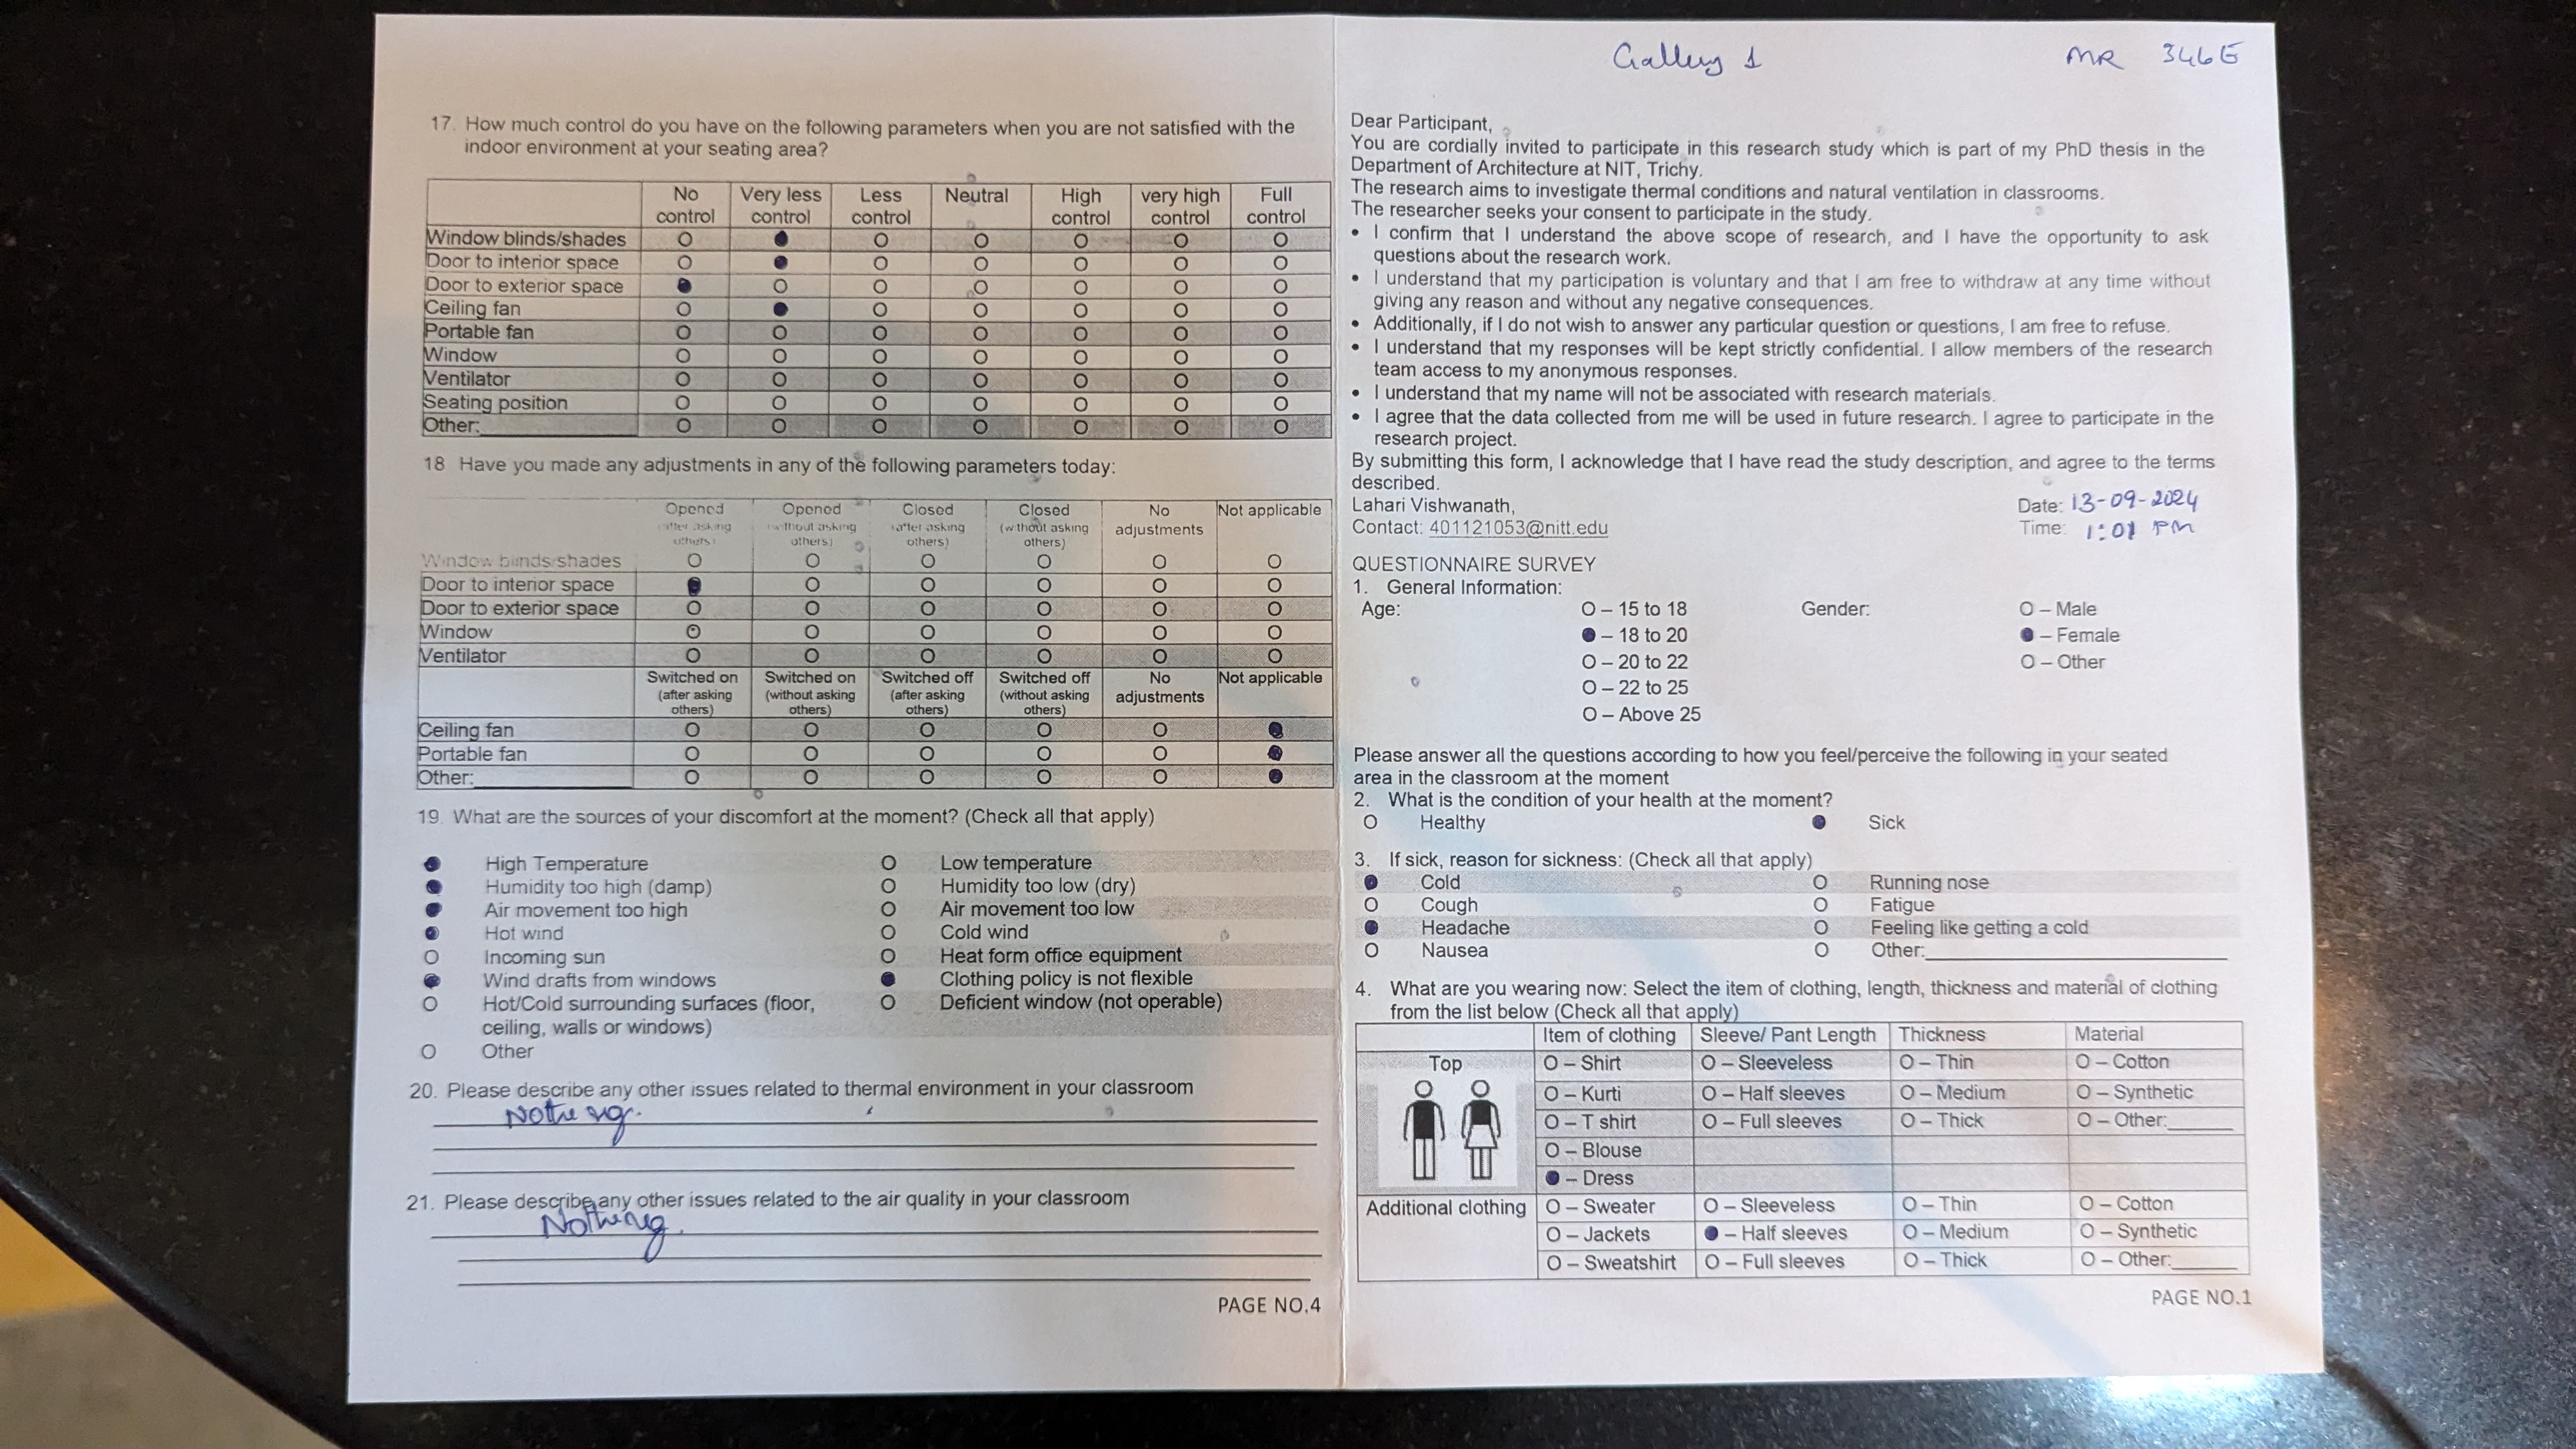 17. How much control do you have on the following parameters when you are not satisfied with the
indoor environment at your seating area?
No control Very less control Less control Neutral High control very high control Full control
Window blinds/shades O ● O O O O O
Door to interior space O ● O O O O O
Door to exterior space ● O O O O O O
Ceiling fan O ● O O O O O
Portable fan O O O O O O O
Window O O O O O O O
Ventilator O O O O O O O
Seating position O O O O O O O
Other:________ O O O O O O O
18 Have you made any adjustments in any of the following parameters today:
Opened (after asking others) Opened (without asking others) Closed (after asking others) Closed (without asking others) No adjustments Not applicable
Window blinds/shades O O O O O O
Door to interior space ● O O O O O
Door to exterior space O O O O O O
Window O O O O O O
Ventilator O O O O O O
Switched on (after asking others) Switched on (without asking others) Switched off (after asking others) Switched off (without asking others) No adjustments Not applicable
Ceiling fan O O O O O ●
Portable fan O O O O O ●
Other:________ O O O O O ●
19. What are the sources of your discomfort at the moment? (Check all that apply)
● High Temperature O Low temperature
● Humidity too high (damp) O Humidity too low (dry)
● Air movement too high O Air movement too low
● Hot wind O Cold wind
O Incoming sun O Heat form office equipment
● Wind drafts from windows ● Clothing policy is not flexible
O Hot/Cold surrounding surfaces (floor, O Deficient window (not operable)
ceiling, walls or windows)
O Other
20. Please describe any other issues related to thermal environment in your classroom
Nothing.
21. Please describe any other issues related to the air quality in your classroom
Nothing.
PAGE NO.4
Gallery 1 MR 346E
Dear Participant,
You are cordially invited to participate in this research study which is part of my PhD thesis in the
Department of Architecture at NIT, Trichy.
The research aims to investigate thermal conditions and natural ventilation in classrooms.
The researcher seeks your consent to participate in the study.
• I confirm that I understand the above scope of research, and I have the opportunity to ask
questions about the research work.
• I understand that my participation is voluntary and that I am free to withdraw at any time without
giving any reason and without any negative consequences.
• Additionally, if I do not wish to answer any particular question or questions, I am free to refuse.
• I understand that my responses will be kept strictly confidential. I allow members of the research
team access to my anonymous responses.
• I understand that my name will not be associated with research materials.
• I agree that the data collected from me will be used in future research. I agree to participate in the
research project.
By submitting this form, I acknowledge that I have read the study description, and agree to the terms
described.
Lahari Vishwanath, Date: 13-09-2024
Contact: 401121053@nitt.edu Time: 1:01 PM
QUESTIONNAIRE SURVEY
1. General Information:
Age: O – 15 to 18 Gender: O – Male
● – 18 to 20 ● – Female
O – 20 to 22 O – Other
O – 22 to 25
O – Above 25
Please answer all the questions according to how you feel/perceive the following in your seated
area in the classroom at the moment
2. What is the condition of your health at the moment?
O Healthy ● Sick
3. If sick, reason for sickness: (Check all that apply)
● Cold O Running nose
O Cough O Fatigue
● Headache O Feeling like getting a cold
O Nausea O Other:________
4. What are you wearing now: Select the item of clothing, length, thickness and material of clothing
from the list below (Check all that apply)
Item of clothing Sleeve/ Pant Length Thickness Material
Top O – Shirt O – Sleeveless O – Thin O – Cotton
O – Kurti O – Half sleeves O – Medium O – Synthetic
O – T shirt O – Full sleeves O – Thick O – Other:______
O – Blouse
● – Dress
Additional clothing O – Sweater O – Sleeveless O – Thin O – Cotton
O – Jackets ● – Half sleeves O – Medium O – Synthetic
O – Sweatshirt O – Full sleeves O – Thick O – Other:______
PAGE NO.1